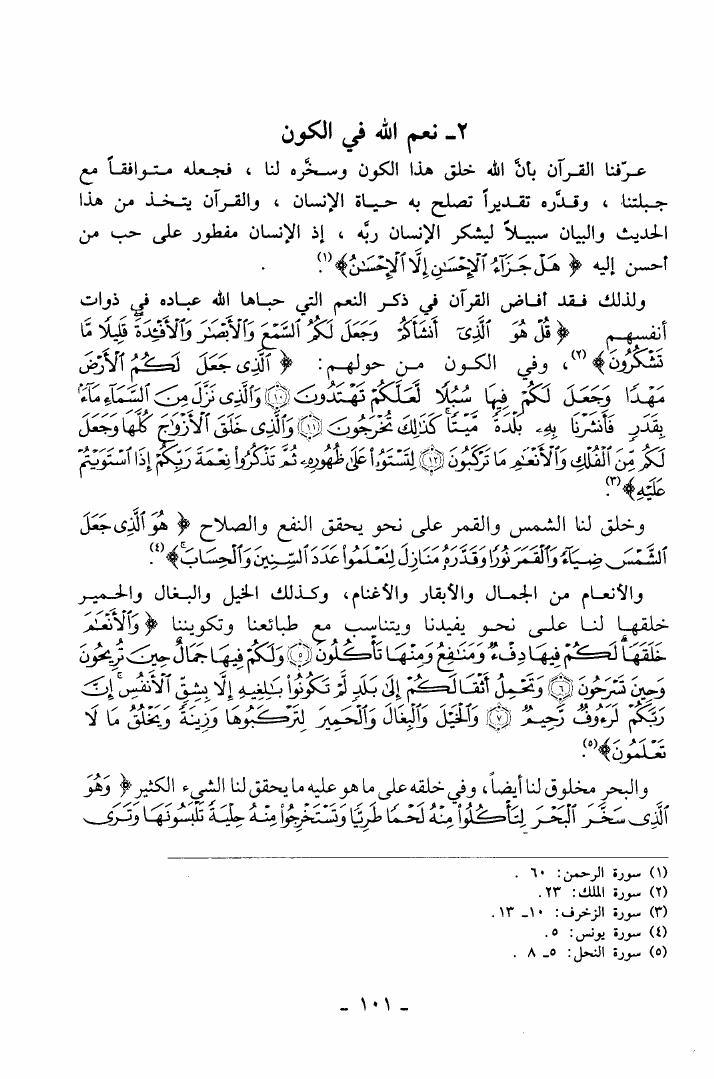 ٢ـ نعم الله في الكون
عـرّفنا القـرآن بأنَّ الله خلق هذا الكون وسخَّره لنا ، فجعله متـوافقـاً مع
جبلتنا ، وقدَّره تقديراً تصلح به حياة الإنسان ، والقرآن يتخذ من هذا
الحديث والبيان سبيلاً ليشكر الإنسان ربَّه ، إذ الإنسان مفطور على حب من
أحسن إليه ﴿ هَلْ جَزَآءُ ٱلْإِحْسَٰنِ إِلَّا ٱلْإِحْسَٰنُ ﴾(١).
ولذلك فقد أفاض القرآن في ذكر النعم التي حباها الله عباده في ذوات
أنفسهم ﴿ قُلْ هُوَ ٱلَّذِىٓ أَنشَأَكُمْ وَجَعَلَ لَكُمُ ٱلسَّمْعَ وَٱلْأَبْصَٰرَ وَٱلْأَفْـِٔدَةَ قَلِيلًا مَّا
تَشْكُرُونَ ﴾(٢)، وفي الكون من حولهم: ﴿ ٱلَّذِى جَعَلَ لَكُمُ ٱلْأَرْضَ
مَهْدًا وَجَعَلَ لَكُمْ فِيهَا سُبُلًا لَّعَلَّكُمْ تَهْتَدُونَ ١٠ وَٱلَّذِى نَزَّلَ مِنَ ٱلسَّمَآءِ مَآءًۢ
بِقَدَرٍ فَأَنشَرْنَا بِهِۦ بَلْدَةً مَّيْتًا كَذَٰلِكَ تُخْرَجُونَ ١١ وَٱلَّذِى خَلَقَ ٱلْأَزْوَٰجَ كُلَّهَا وَجَعَلَ
لَكُم مِّنَ ٱلْفُلْكِ وَٱلْأَنْعَٰمِ مَا تَرْكَبُونَ ١٢ لِتَسْتَوُۥا۟ عَلَىٰ ظُهُورِهِۦ ثُمَّ تَذْكُرُوا۟ نِعْمَةَ رَبِّكُمْ إِذَا ٱسْتَوَيْتُمْ
عَلَيْهِ ﴾(٣).
وخلق لنا الشمس والقمر على نحو يحقق النفع والصلاح ﴿ هُوَ ٱلَّذِى جَعَلَ
ٱلشَّمْسَ ضِيَآءً وَٱلْقَمَرَ نُورًا وَقَدَّرَهُۥ مَنَازِلَ لِتَعْلَمُوا۟ عَدَدَ ٱلسِّنِينَ وَٱلْحِسَابَ ﴾(٤).
والأنعام من الجمال والأبقار والأغنام، وكذلك الخيل والبغال والحمير
خلقها لنا على نحو يفيدنا ويتناسب مع طبائعنا وتكويننا ﴿ وَٱلْأَنْعَٰمَ
خَلَقَهَا لَكُمْ فِيهَا دِفْءٌ وَمَنَٰفِعُ وَمِنْهَا تَأْكُلُونَ ٥ وَلَكُمْ فِيهَا جَمَالٌ حِينَ تُرِيحُونَ
وَحِينَ تَسْرَحُونَ ٦ وَتَحْمِلُ أَثْقَالَكُمْ إِلَىٰ بَلَدٍ لَّمْ تَكُونُوا۟ بَٰلِغِيهِ إِلَّا بِشِقِّ ٱلْأَنفُسِ إِنَّ
رَبَّكُمْ لَرَءُوفٌ رَّحِيمٌ ٧ وَٱلْخَيْلَ وَٱلْبِغَالَ وَٱلْحَمِيرَ لِتَرْكَبُوهَا وَزِينَةً وَيَخْلُقُ مَا لَا
تَعْلَمُونَ ﴾(٥).
والبحر مخلوق لنا أيضاً، وفي خلقه على ما هو عليه ما يحقق لنا الشيء الكثير ﴿ وَهُوَ
ٱلَّذِى سَخَّرَ ٱلْبَحْرَ لِتَأْكُلُوا۟ مِنْهُ لَحْمًا طَرِيًّا وَتَسْتَخْرِجُوا۟ مِنْهُ حِلْيَةً تَلْبَسُونَهَا وَتَرَى
(١) سورة الرحمن: ٦٠ .
(٢) سورة الملك: ٢٣.
(٣) سورة الزخرف: ١٠ـ ١٣.
(٤) سورة يونس: ٥.
(٥) سورة النحل: ٥ـ ٨ .
ـ ١٠١ ـ